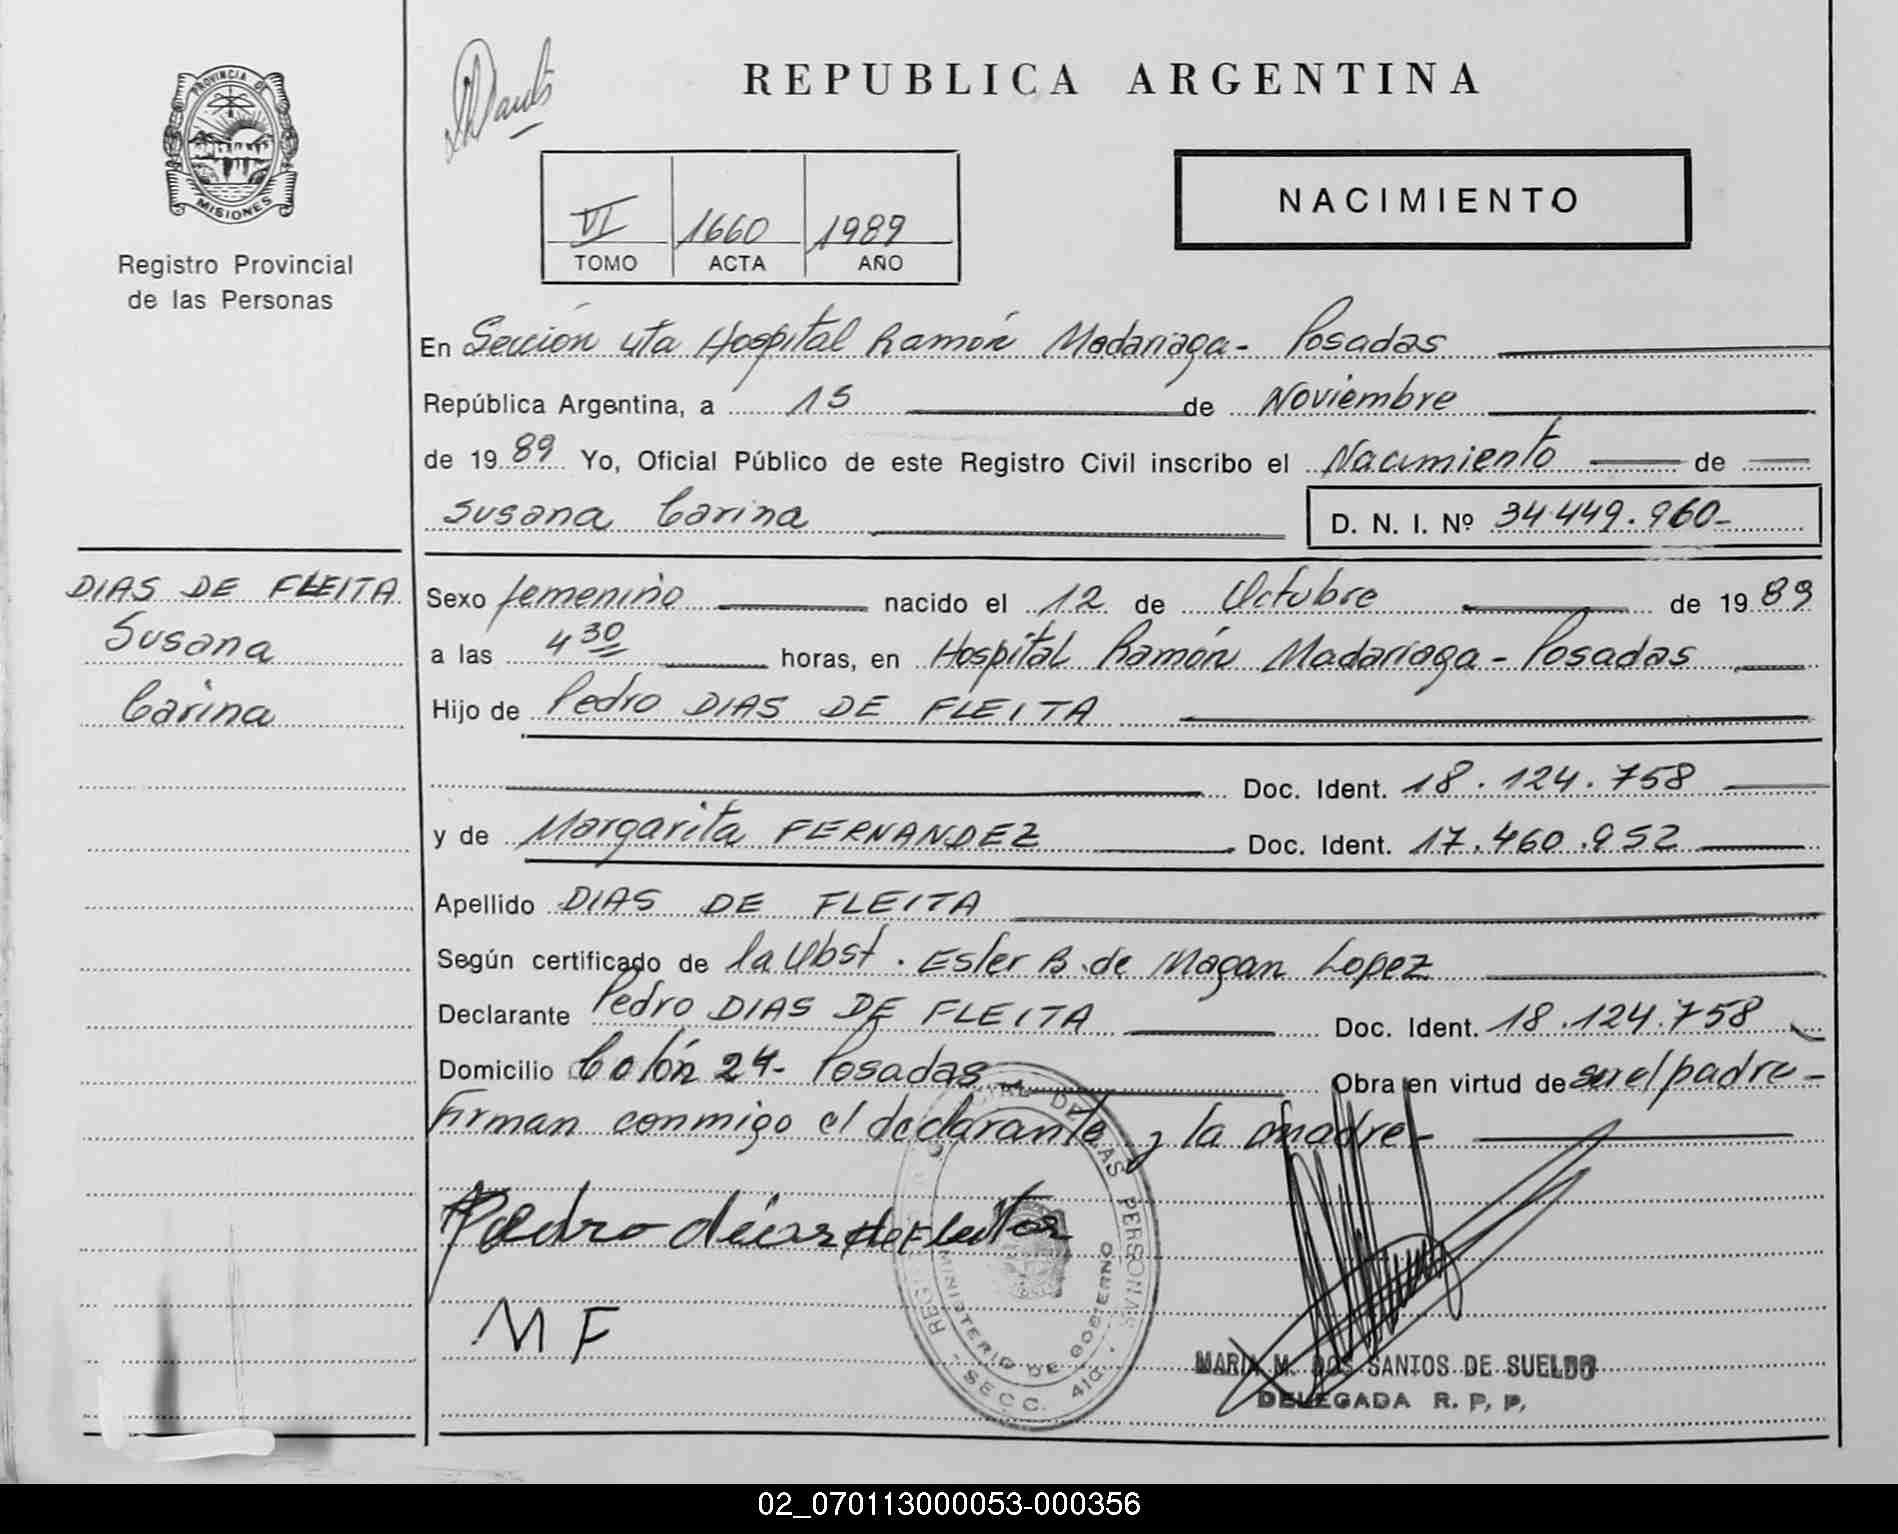 PROVINCIA DE
MISIONES
Registro Provincial
de las Personas
REPUBLICA ARGENTINA
NACIMIENTO
VI 1660 1989
TOMO ACTA AÑO
En Sección 4ta Hospital Ramón Madariaga - Posadas
República Argentina, a 15 de Noviembre
de 19 89 Yo, Oficial Público de este Registro Civil inscribo el Nacimiento de
Susana Carina D. N. I. Nº 34.449.960-
DIAS DE FLEITA
Susana
Carina
Sexo femenino nacido el 12 de Octubre de 19 89
a las 4 30 horas, en Hospital Ramón Madariaga - Posadas
Hijo de Pedro DIAS DE FLEITA
Doc. Ident. 18.124.758
y de Margarita FERNANDEZ Doc. Ident. 17.460.952
Apellido DIAS DE FLEITA
Según certificado de la Obst. Ester B. de Magan Lopez
Declarante Pedro DIAS DE FLEITA Doc. Ident. 18.124.758
Domicilio Colón 24- Posadas Obra en virtud de ser el padre-
Firman conmigo el declarante y la madre-
Pedro dias de Fleita
M F
DE LAS PERSONAS
MINISTERIO DE GOBIERNO
SECC. 4ta.
MARIA M. DOS SANTOS DE SUELDO
DELEGADA R. P. P.
02_070113000053-000356